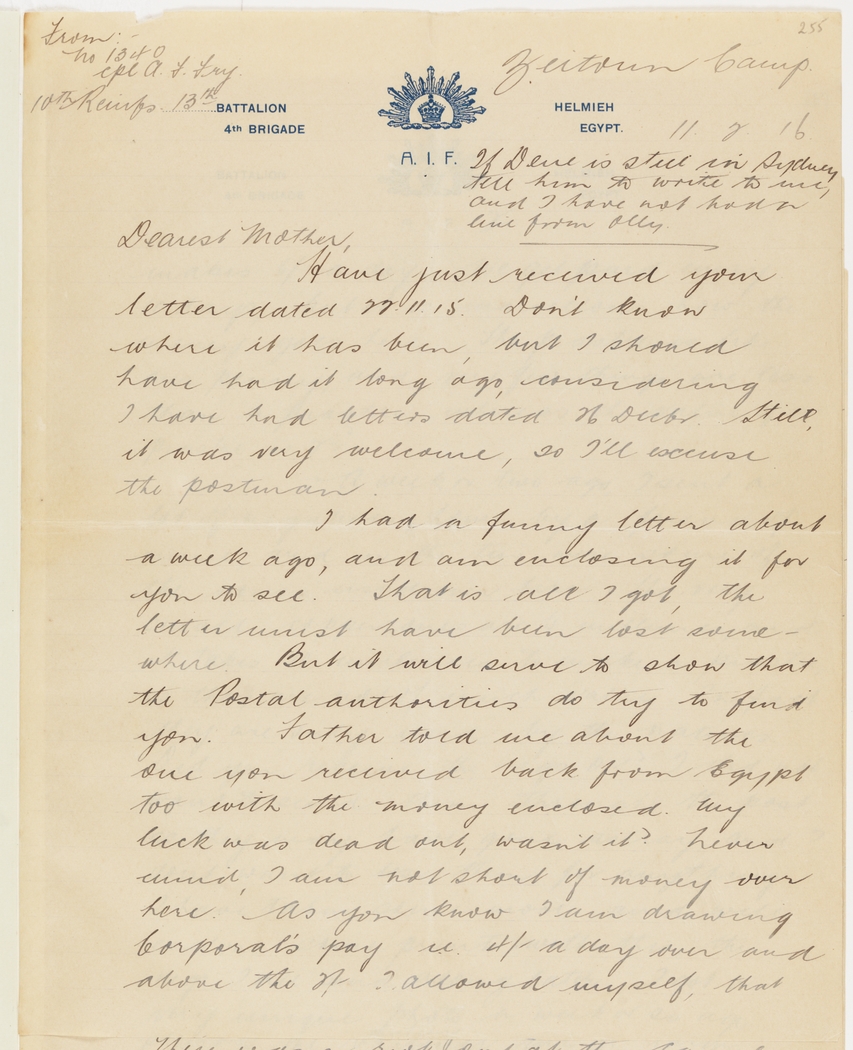 255
From:-
No 1340
cpl A. F. Fry.
10th Reinfs. 13th BATTALION
4th BRIGADE
A. I. F.
Zeitoun Camp.
HELMIEH
EGYPT.
11. 2. 16.
If Dene is still in Sydney,
tell him to write to me,
and I have not had a
line from Olly.
Dearest Mother,
Have just received your
letter dated 22.11.15. Don't know
where it has been, but I should
have had it long ago, considering
I have had letters dated 26 Decbr. Still,
it was very welcome, so I'll excuse
the postman.
I had a funny letter about
a week ago, and am enclosing it for
you to see. That is all I got, the
letter must have been lost some-
where. But it will serve to show that
the Postal authorities do try to find
you. Father told me about the
one you received back from Egypt
too with the money enclosed. My
luck was dead out, wasn't it? Never
mind, I am not short of money over
here. As you know I am drawing
Corporal's pay i.e. 4/- a day over and
above the 2/- I allowed myself, that